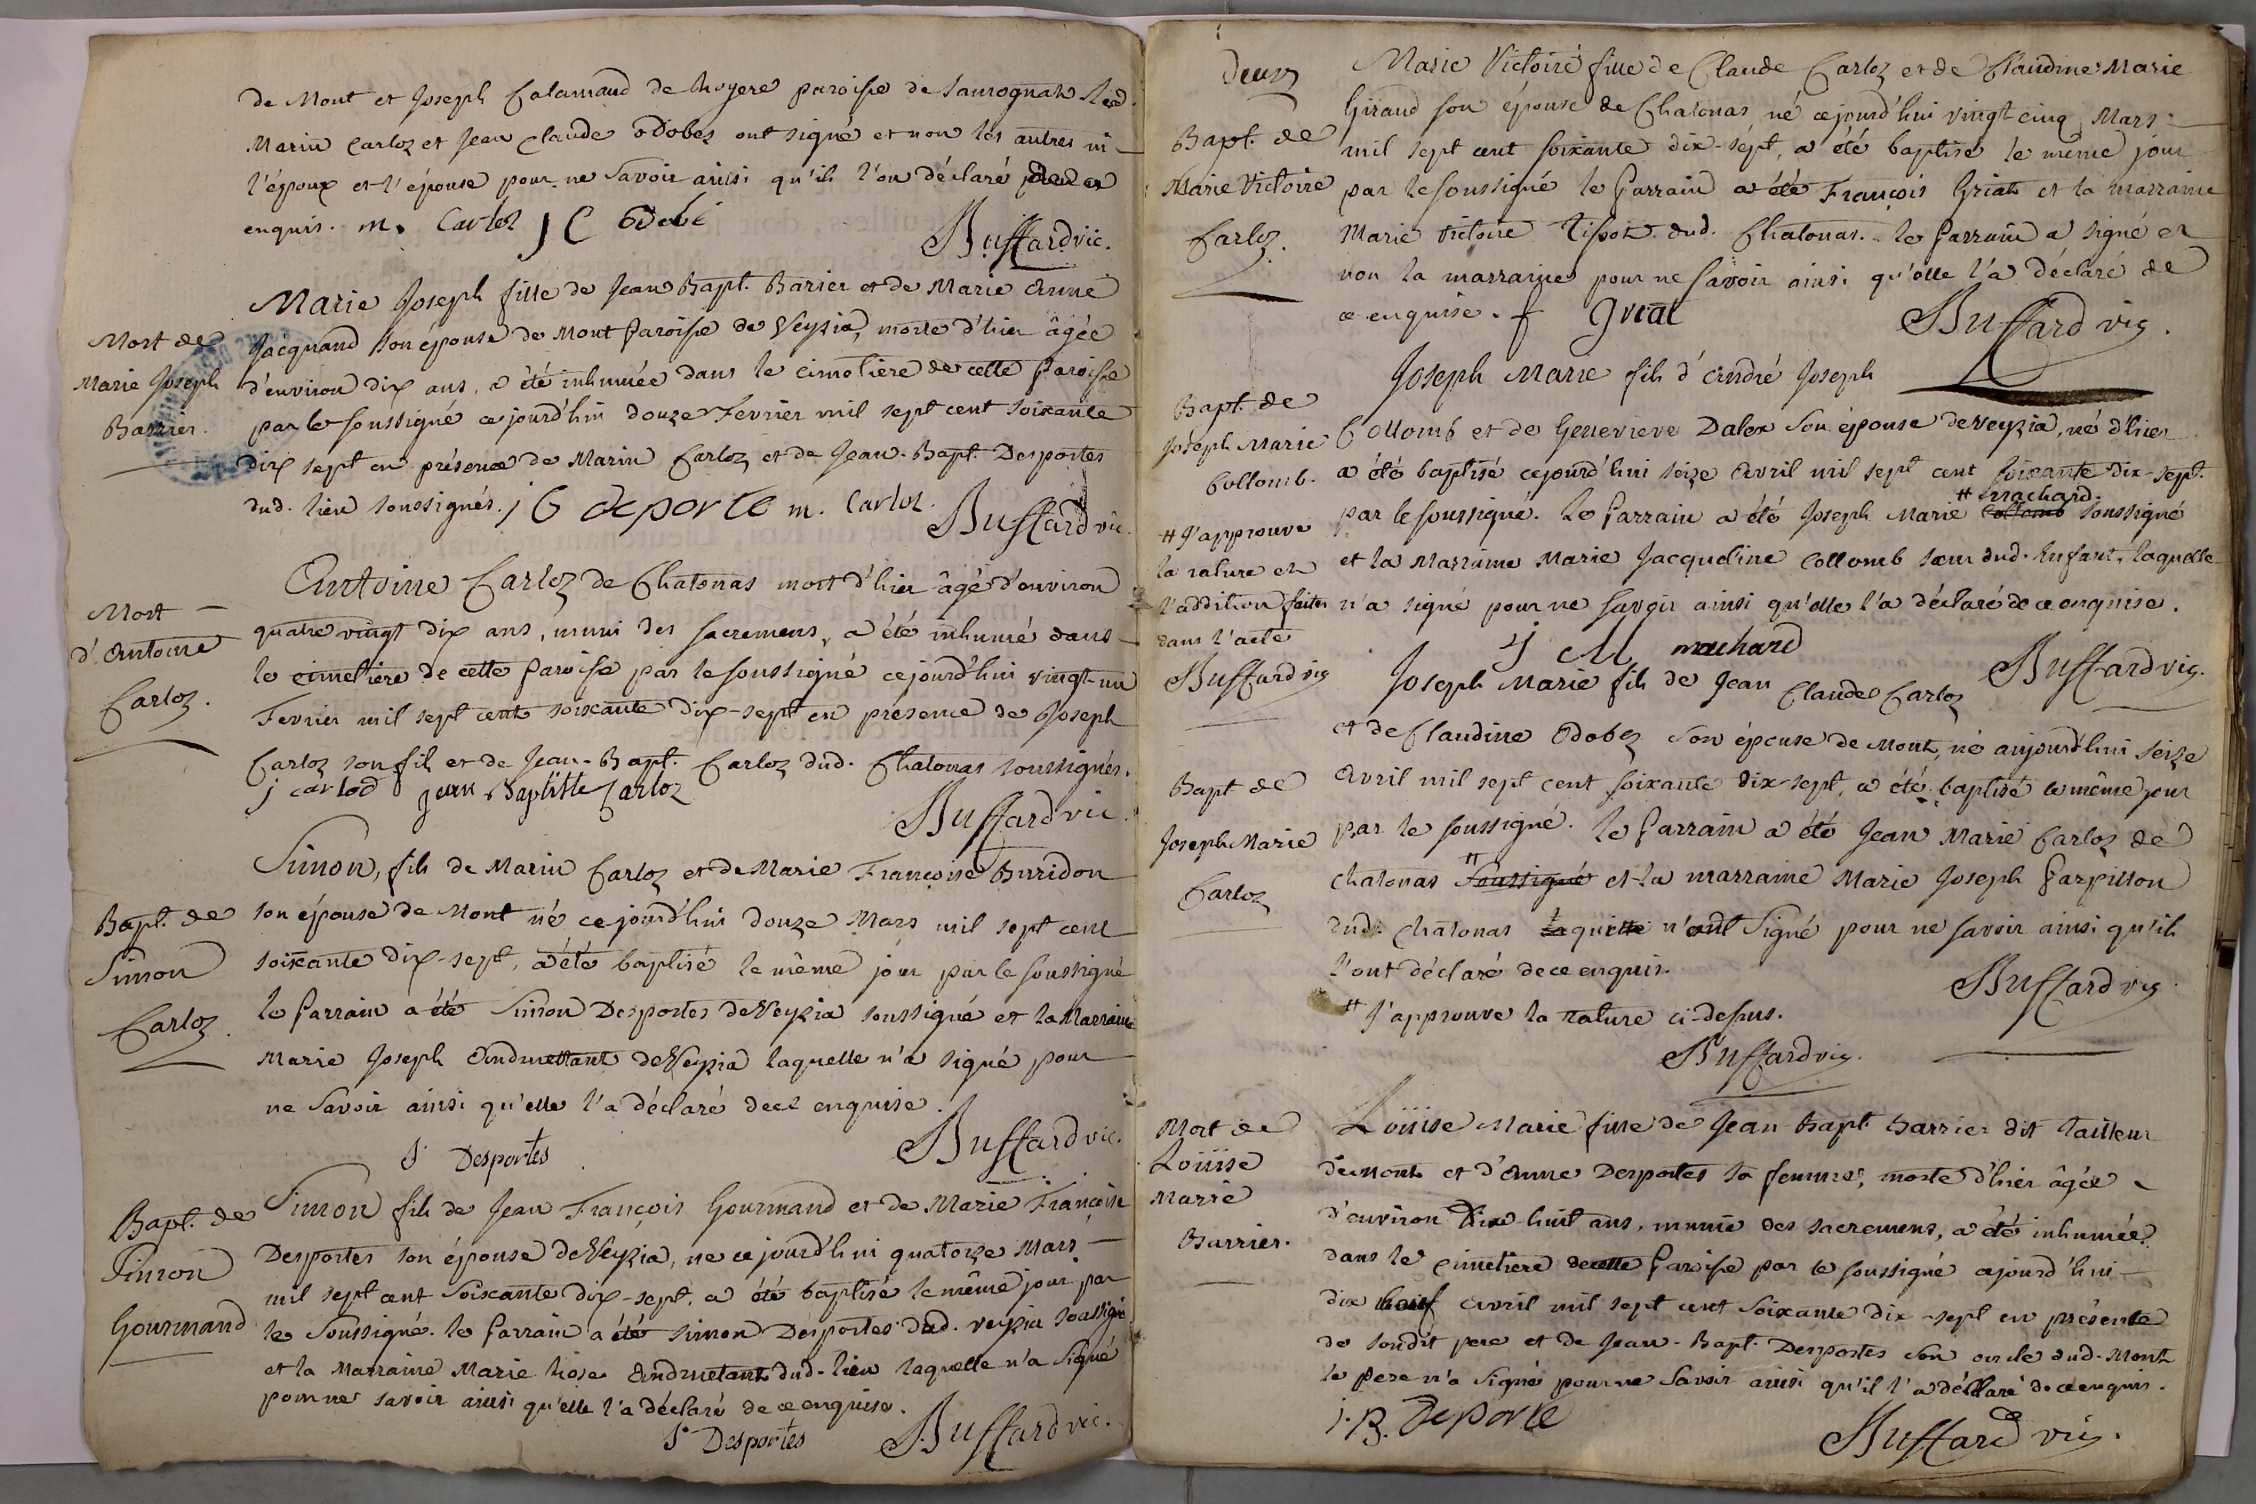 de Mont et Joseph Calamand de huyere paroisse de Samognat. led.
Marin Carloz et Jean Claude Odobez ont signé et non les autres ni
l'époux et l'épouse pour ne savoir ainsi qu'ils l'on déclaré de ce
enquis. m. Carloz J C Odobé
Buffard vic.
Mort de
Marie Joseph
Barrier.
Marie Joseph fille de Jean Bapt. Barier et de Marie Anne
Jacquand son épouse de Mont Paroisse de Veyzia, morte d'hier âgée
d'environ dix ans, a été inhumée dans le cimetiere de cette Paroisse
par le soussigné cejourd'hui douze Fevrier mil sept cent soixante
dix sept en présence de Marin Carloz et de Jean-Bapt. Desportes
dud. lieu soussignés. j B deporte m. Carloz
Buffard vic.
Mort
d'Antoine
Carloz.
Antoine Carloz de Chatonas mort d'hier âgé d'environ
quatre vingt dix ans, muni des sacremens, a été inhumé dans
le cimetiere de cette Paroisse par le soussigné cejourd'hui vingt-un
Fevrier mil sept cent soixante dix-sept en présence de Joseph
Carloz son fils et de Jean-Bapt. Carloz dud. Chatonas soussignés.
j carlod jean Baptiste Carloz
Buffard vic.
Bapt. de
Simon
Carloz.
Simon, fils de Marin Carloz et de Marie Françoise Buridon
son épouse de Mont né cejourd'hui douze Mars mil sept cent
soixante dix-sept, a été baptisé le même jour par le soussigné
le Parrain a été Simon Desportes de Veyzia soussigné et la Marraine
Marie Joseph Andruettant de Veyzia laquelle n'a signé pour
ne savoir ainsi qu'elle l'a déclaré de ce enquise.
S Desportes
Buffard vic.
Bapt. de
Simon
Gourmand
Simon fils de Jean François Gourmand et de Marie Françoise
Desportes son épouse de Veyzia, né cejourd'hui quatorze Mars
mil sept cent soixante dix-sept, a été baptisé le même jour par
le soussigné. le Parrain a été Simon Desportes dud. veyzia soussigné
et la Marraine Marie Rose Andruetant dud. lieu laquelle n'a signé
pour ne savoir ainsi qu'elle l'a déclaré de ce enquise.
S Desportes Buffard vic.
deux
Bapt. de
Marie Victoire
Carloz.
Marie Victoire fille de Claude Carloz et de Claudine Marie
Giraud son épouse de Chatonas né cejourd'hui vingt cinq Mars
mil sept cent soixante dix-sept, a été baptisé le même jour
par le soussigné le Parrain a été François Griat et la marraine
Marie Victoire Tissot dud. Chatonas. le Parrain a signé et
non la marraine pour ne savoir ainsi qu'elle l'a déclaré de
ce enquise. f griat
Buffard vic.
Bapt. de
Joseph Marie
Collomb.
Joseph Marie fils d'André Joseph
Collomb et de Genevieve Dalex son épouse de veyzia, né d'hier
a été baptisé cejourd'hui seize Avril mil sept cent soixante dix-sept.
# machard.
par le soussigné. Le Parrain a été Joseph Marie Collomb soussigné
et la Marraine Marie Jacqueline Collomb sœur dud. Enfant, laquelle
n'a signé pour ne savoir ainsi qu'elle l'a déclaré de ce enquise.
# J'approuve
la rature et
l'addition faites
dans l'acte
Buffard vic
J M machard
Buffard vic.
Bapt de
Joseph Marie
Carloz
Joseph Marie fils de Jean Claude Carloz
et de Claudine Odobez son épouse de Mont, né aujourd'hui seize
Avril mil sept cent soixante dix-sept, a été baptisé le même jour
par le soussigné. le Parrain a été Jean Marie Carloz de
chatonas # soussigné et la marraine Marie Joseph Parpillon
dud. Chatonas n'ont signé pour ne savoir ainsi qu'ils
l'ont déclaré de ce enquis.
Buffard vic.
# J'approuve la rature ci-dessus.
Buffard vic.
Mort de
Loüise
Marie
Barrier.
Loüise Marie fille de Jean Bapt. Barrier dit tailleur
de Mont et d'Anne Desportes sa femme, morte d'hier âgée
d'environ Dix-huit ans, munie des sacremens, a été inhumée
dans le cimetiere de cette Paroisse par le soussigné cejourd'hui
dix neuf Avril mil sept cent soixante dix-sept en présence
de sondit pere et de Jean-Bapt. Desportes son oncle dud. Mont
le pere n'a signé pour ne savoir ainsi qu'il l'a déclaré de ce enquis.
j. B. deporte
Buffard vic.